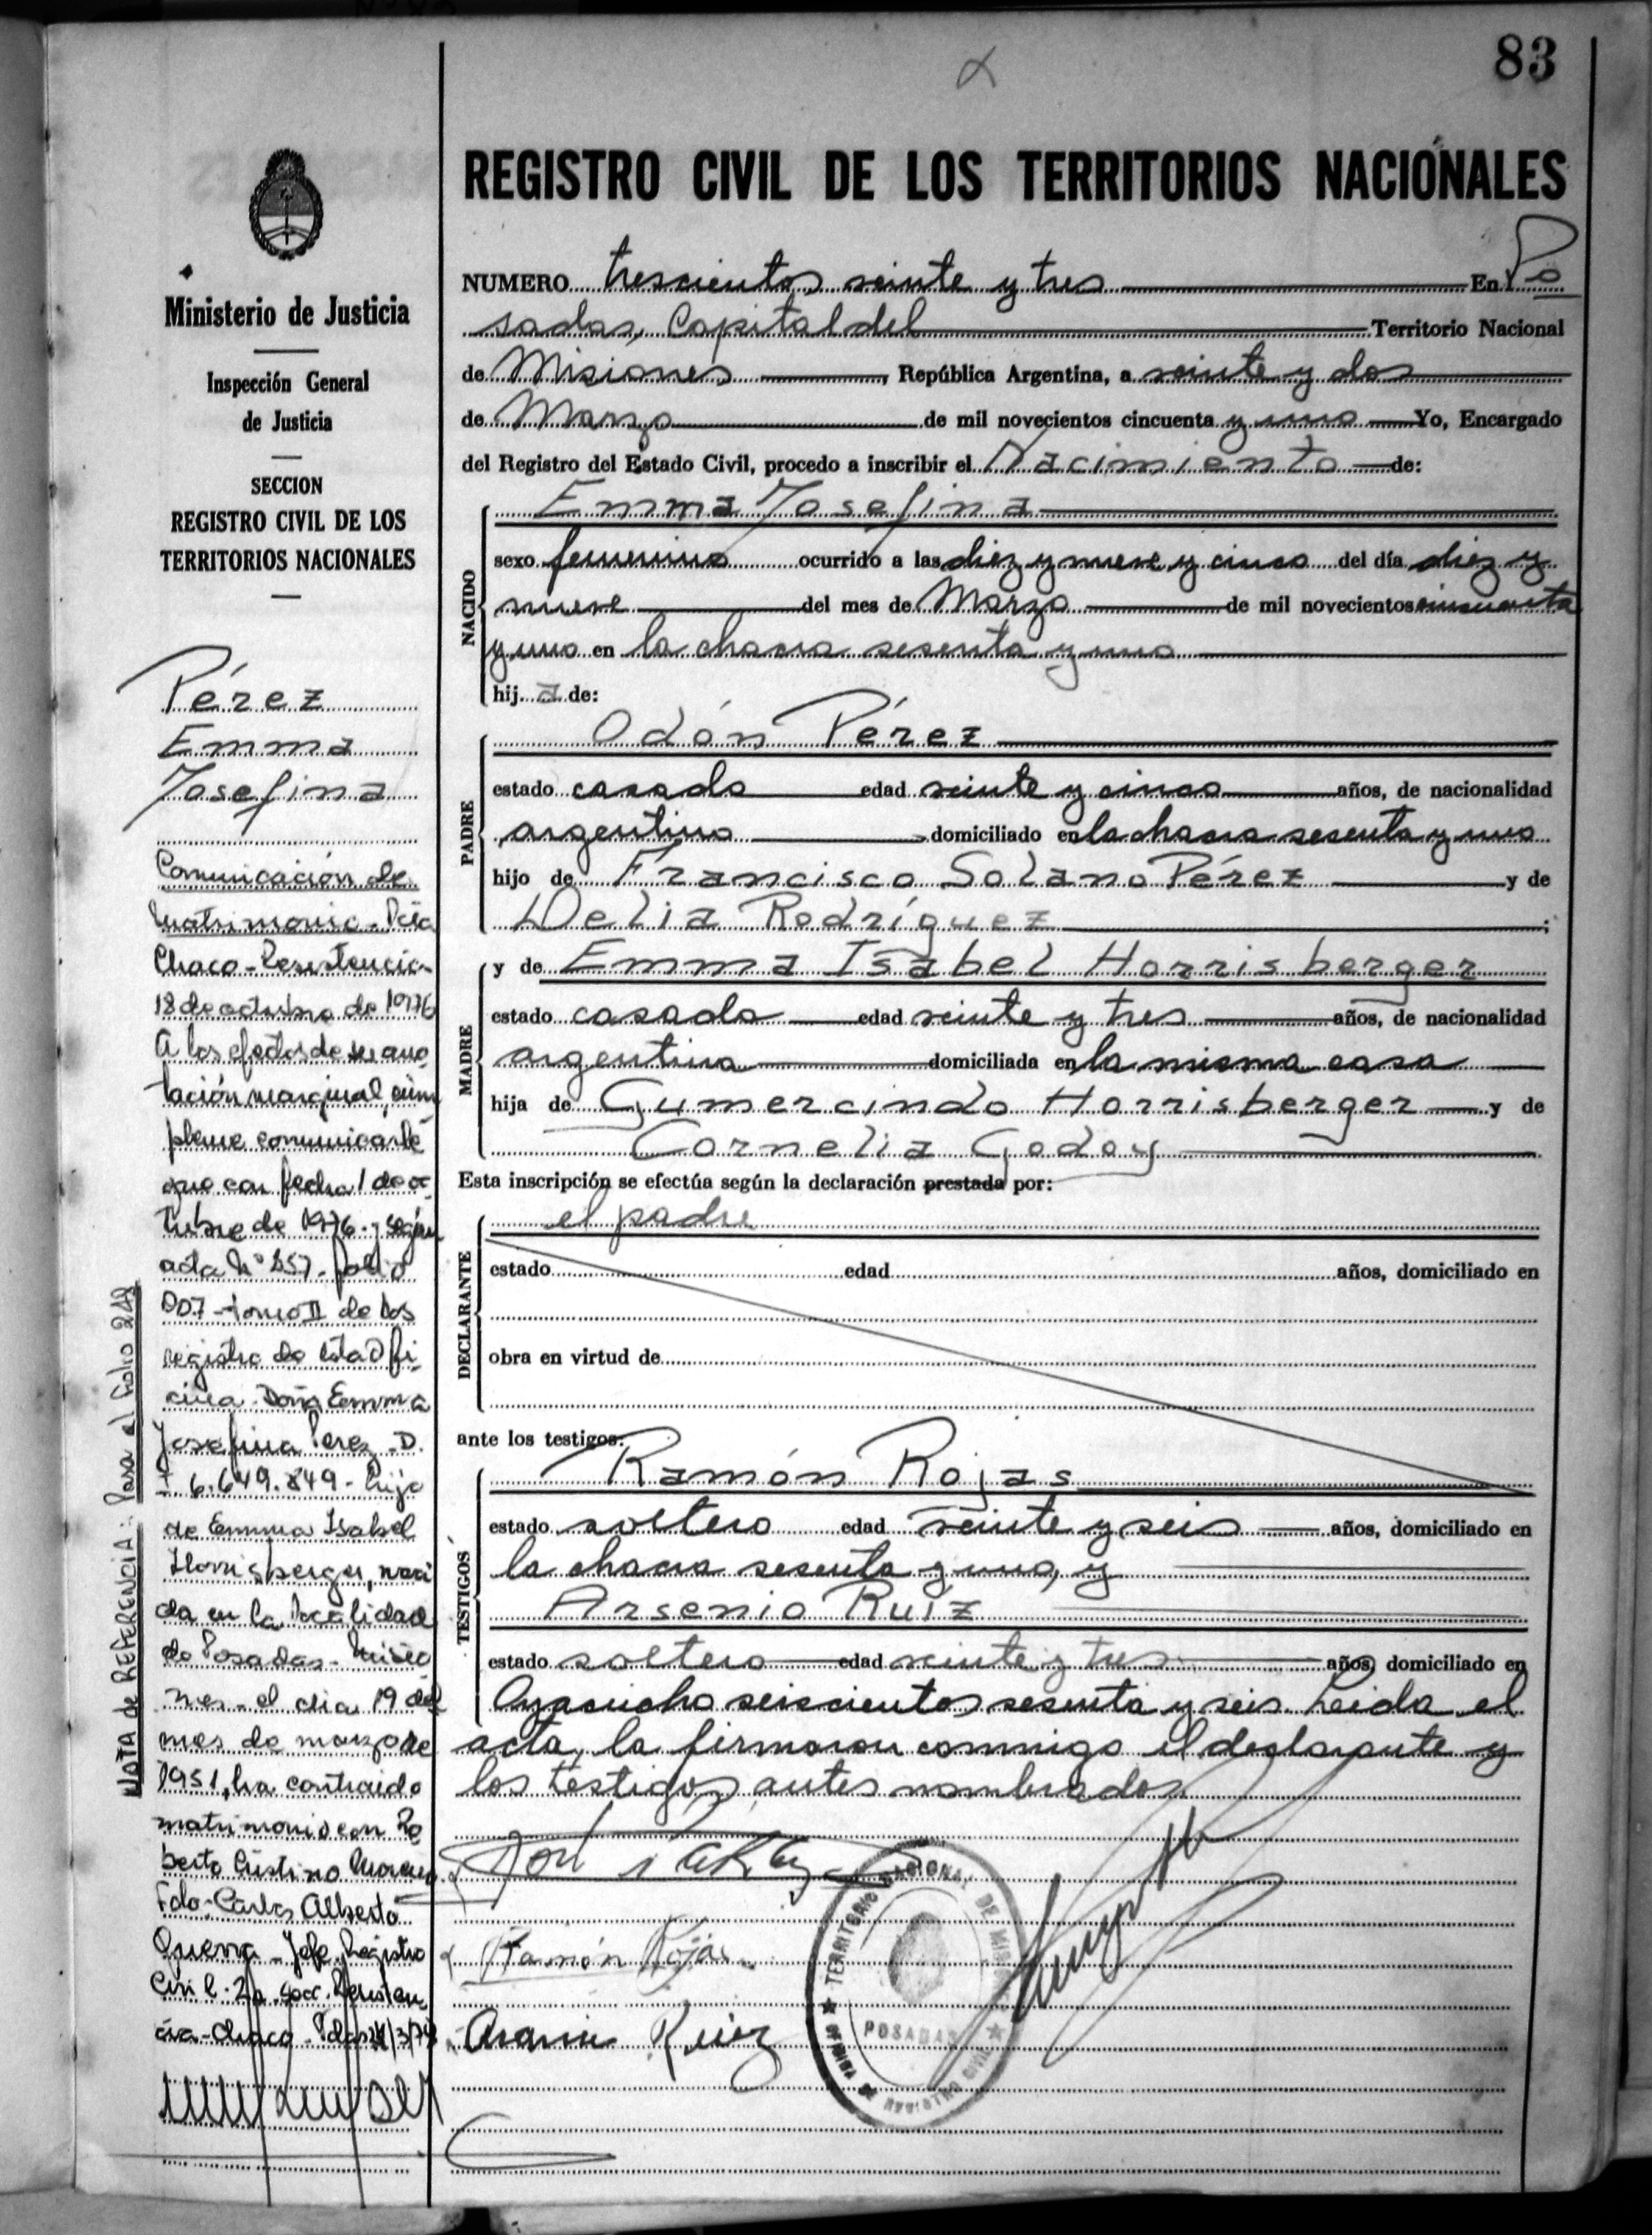 83
REGISTRO CIVIL DE LOS TERRITORIOS NACIONALES
Ministerio de Justicia
Inspección General
de Justicia
SECCION
REGISTRO CIVIL DE LOS
TERRITORIOS NACIONALES
Pérez
Emma
Josefina
Comunicación de
Matrimonio - Pcia
Chaco - Resistencia -
18 de octubre de 1976
A los efectos de su ano
tación marginal, cúm
pleme comunicarle
que con fecha 1 de oc
tubre de 1976 - según
acta Nº 857 - folio
007 - tomo II de los
registro de esta Ofi
cina - Doña Emma
Josefina Perez - D.
I 6.649.849 - hija
de Emma Isabel
Horrisberger, naci
da en la localidad
de Posadas - Misio
nes - el dia 19 del
mes de marzo de
1951, ha contraido
matrimonio con Ro
berto Cristino
Fdo - Carlos Alberto
Jefe Registro
Civil - 2a Secc. Resisten
cia - Chaco - Pdas /3/79
NOTA de REFERENCIA: Pasa al folio 248
NUMERO trescientos veinte y tres En Po
sadas, Capital del Territorio Nacional
de Misiones, República Argentina, a veinte y dos
de Marzo de mil novecientos cincuenta y uno Yo, Encargado
del Registro del Estado Civil, procedo a inscribir el Nacimiento de:
NACIDO
Emma Josefina
sexo femenino ocurrido a las diez y nueve y cinco del día diez y
nueve del mes de Marzo de mil novecientos cincuenta
y uno en la chacra sesenta y uno
hija de:
PADRE
Odón Pérez
estado casado edad veinte y cinco años, de nacionalidad
argentino domiciliado en la chacra sesenta y uno
hijo de Francisco Solano Pérez y de
Delia Rodríguez;
MADRE
y de Emma Isabel Horrisberger
estado casada edad veinte y tres años, de nacionalidad
argentina domiciliada en la misma casa
hija de Gumercindo Horrisberger y de
Cornelia Godoy
Esta inscripción se efectúa según la declaración prestada por:
DECLARANTE
el padre
estado edad años, domiciliado en
obra en virtud de
ante los testigos:
TESTIGOS
Ramón Rojas
estado soltero edad veinte y seis años, domiciliado en
la chacra sesenta y uno, y
Arsenio Ruíz
estado soltero edad veinte y tres años, domiciliado en
Ayacucho seiscientos sesenta y seis. Leida el
acta, la firmaron conmigo el declarante y
los testigos antes nombrados
Ramón Rojas
Arsenio Ruiz
TERRITORIO NACIONAL DE MISIONES
POSADAS
OFICINA DE REGISTRO CIVIL